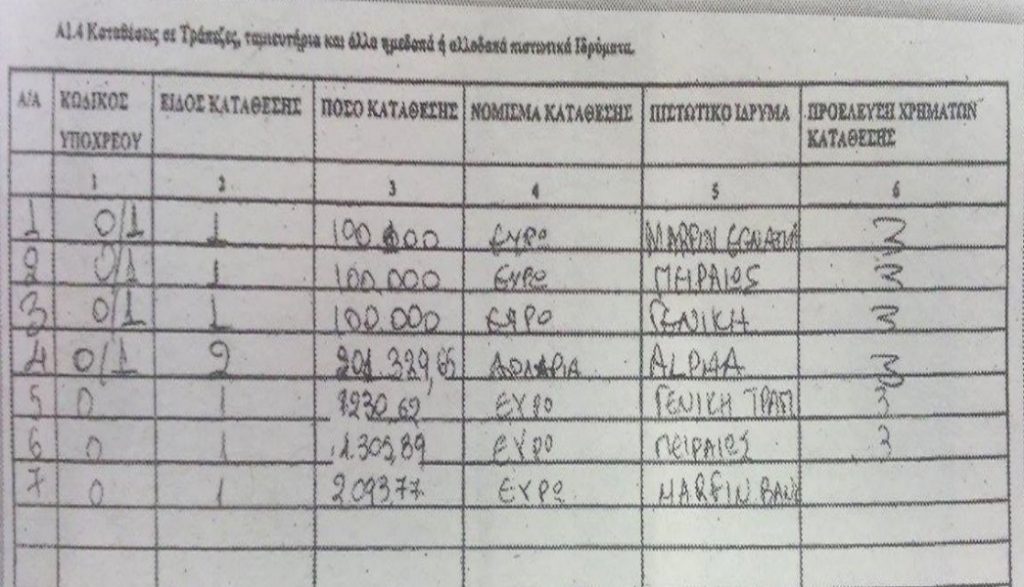 Α1.4 Καταθέσεις σε Τράπεζες, ταμιευτήρια και άλλα ημεδαπά ή αλλοδαπά πιστωτικά Ιδρύματα.
Α/Α ΚΩΔΙΚΟΣ ΥΠΟΧΡΕΟΥ ΕΙΔΟΣ ΚΑΤΑΘΕΣΗΣ ΠΟΣΟ ΚΑΤΑΘΕΣΗΣ ΝΟΜΙΣΜΑ ΚΑΤΑΘΕΣΗΣ ΠΙΣΤΩΤΙΚΟ ΙΔΡΥΜΑ ΠΡΟΕΛΕΥΣΗ ΧΡΗΜΑΤΩΝ ΚΑΤΑΘΕΣΗΣ
1 2 3 4 5 6
1 0/1 1 100.000 ΕΥΡΩ MARFIN EGNATIA 3
2 0/1 1 100.000 ΕΥΡΩ ΠΕΙΡΑΙΩΣ 3
3 0/1 1 100.000 ΕΥΡΩ ΓΕΝΙΚΗ 3
4 0/1 2 201.329,65 ΔΟΛΑΡΙΑ ALPHA 3
5 0 1 7230,62 ΕΥΡΩ ΓΕΝΙΚΗ ΤΡΑΠ 3
6 0 1 1.305,89 ΕΥΡΩ ΠΕΙΡΑΙΩΣ 3
7 0 1 209377 ΕΥΡΩ MARFIN BANK